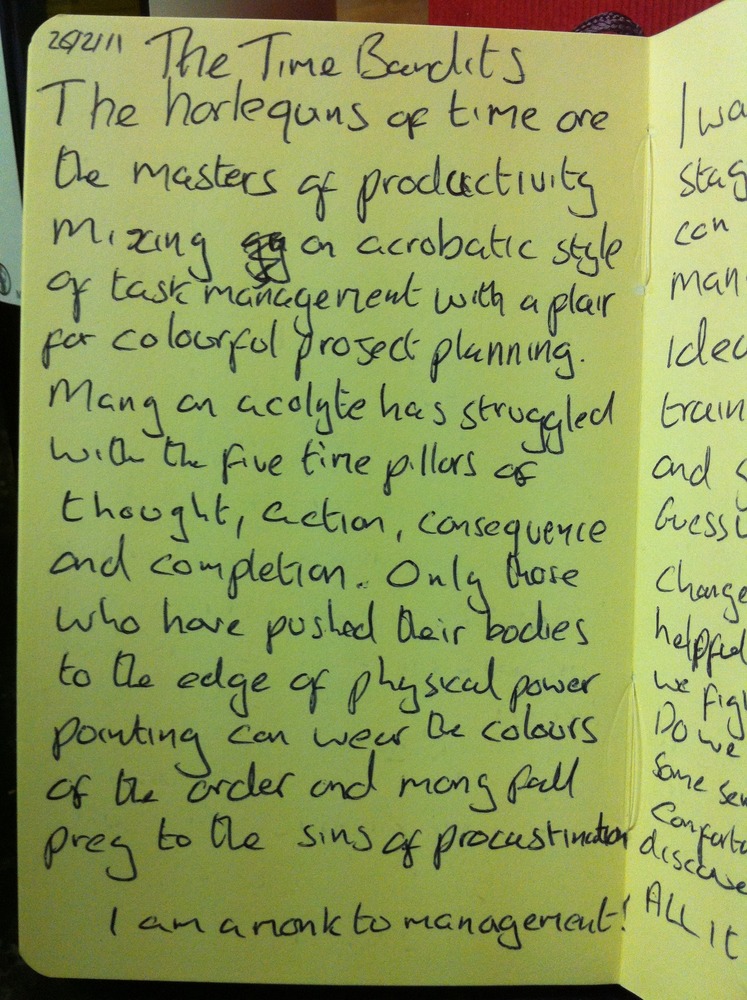 26/2/11 The Time Bandits
The harlequins of time are
the masters of productivity
mixing an acrobatic style
of task management with a flair
for colourful project planning.
Many an acolyte has struggled
with the five time pillars of
thought, action, consequence
and completion. Only those
who have pushed their bodies
to the edge of physical power
pointing can wear the colours
of the order and many fall
prey to the sins of procrastination
I am a monk to management!
I wa
stag
can
man
Idea
train
and
Guess
change
helpful
we figh
Do we
Some sen
Comforta
disease
ALL it